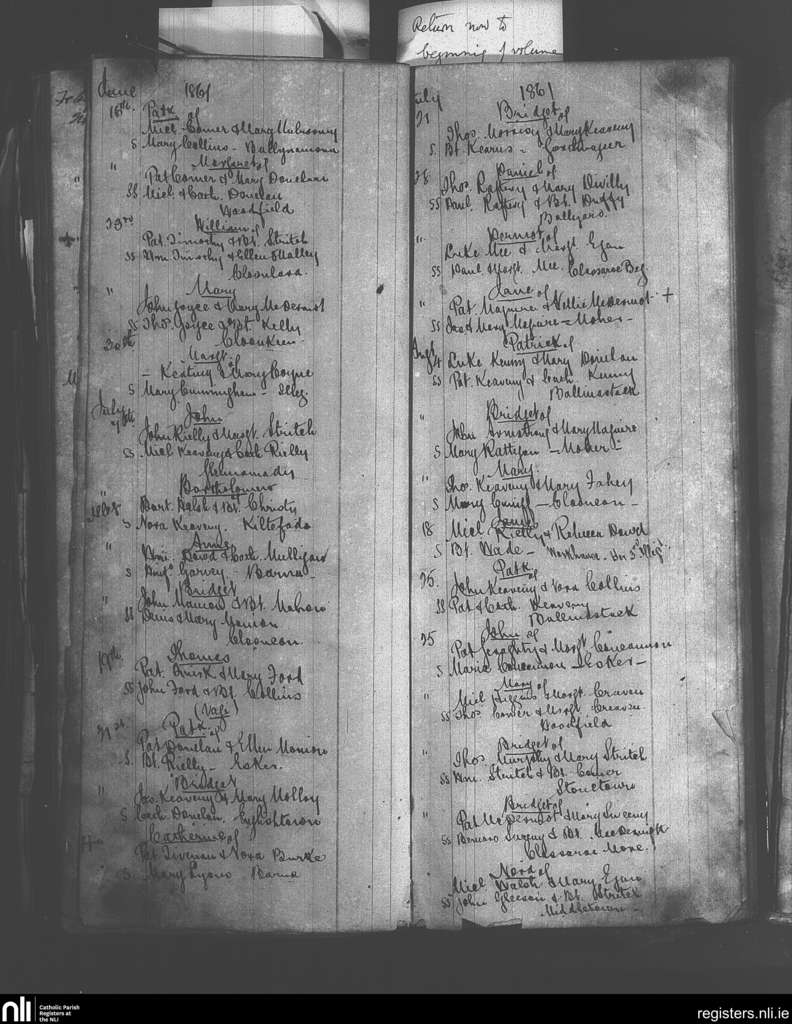 Return now to
beginning of volume
June 1861
16th Patk of
Miel Comer & Mary Mulrooney
S Mary Collins - Ballynamona
" Margaret of
Pat Comer & Mary Donelan
SS Miel & Cath. Donelan
Woodfield
23rd William of
Pat. Timothy & Bt. Stritch
SS Wm. Timothy & Ellen Malley
Cloonlara.
" Mary
John Joyce & Mary McDermot
SS Thos. Joyce & Bt. Kelly
Cloonkeen
30th Margt. of
- Keating & Mary Coyne
S Mary Cunningham - Illeg.
July
7th John
John Rielly & Margt. Stritch
SS Miel Keaveny & Cath Rielly
" Bartholomew
Bart Walsh & Bt. Christy
S Nora Keaveny. Kiltefado
" Anne
Wm. Dowd & Cath. Mulligan
S Garvey - Barna -
" Bridget
John Mannion & Bt. Mahon
SS Denis & Mary Mannion
Clooncon.
14th Thomas
Pat. & Mary Ford
SS John Ford & Bt. Collins
21st Patk of
Pat Donelan & Ellen Mannion
S. Bt. Rielly - Esker.
" Bridget
Jas. Keaveny & Mary Molloy
S Cath. Donelan.
Catherine of
Pat & Nora Burke
S Mary Lyons Barna
1861
July
21 Bridget of
Thos. Morrissy & Mary Keaveny
S. Bt. Kearns -
28 Daniel of
Thos. Raftery & Mary Divilly
SS Paul. Raftery & Bt. Duffy
" Dermot of
Luke Mee & Margt Egan
SS Paul & Margt. Mee. Classaroe Beg
" Jane of
Pat Maguire & Nellie McDermot +
SS Jas & Mary Maguire = Maher -
Augt
4 Patrick of
Luke Kenny & Mary Donelan
SS Pat. Keaveny & Cath. Kenny
Ballinastack
" Bridget of
John Armstrong & Mary Maguire
S Mary Rattigan - Maher -
" Mary.
Thos. Keaveny & Mary Fahey
S Mary Cunniff - Clooncon -
18 James
Miel Rielly & Rebecca Dowd
S Bt. Wade - Workhouse -
25. Patk of
John Keaveny & Nora Collins
SS Pat & Cath. Keaveny
Ballinastack
25 John of
Pat Geraghty & Margt Concannon
S Maria Concannon - Esker -
" Mary of
Miel Higgins & Margt. Craven
SS Thos Comer & Margt Creaven.
Woodfield
" Bridget of
Thos. Murphy & Mary Stritch
SS Wm. Stritch & Bt. Comer
Stonetown
" Bridget of
Pat McDermot & Mary Sweeny
SS Bernard Sweeny & Bt. MacDermott
Classaroe More.
Nora of
Miel Walsh & Mary Egan
SS John Gleeson & Bt. Stritch
Middletown -
nli
Catholic Parish
Registers at
the NLI
registers.nli.ie